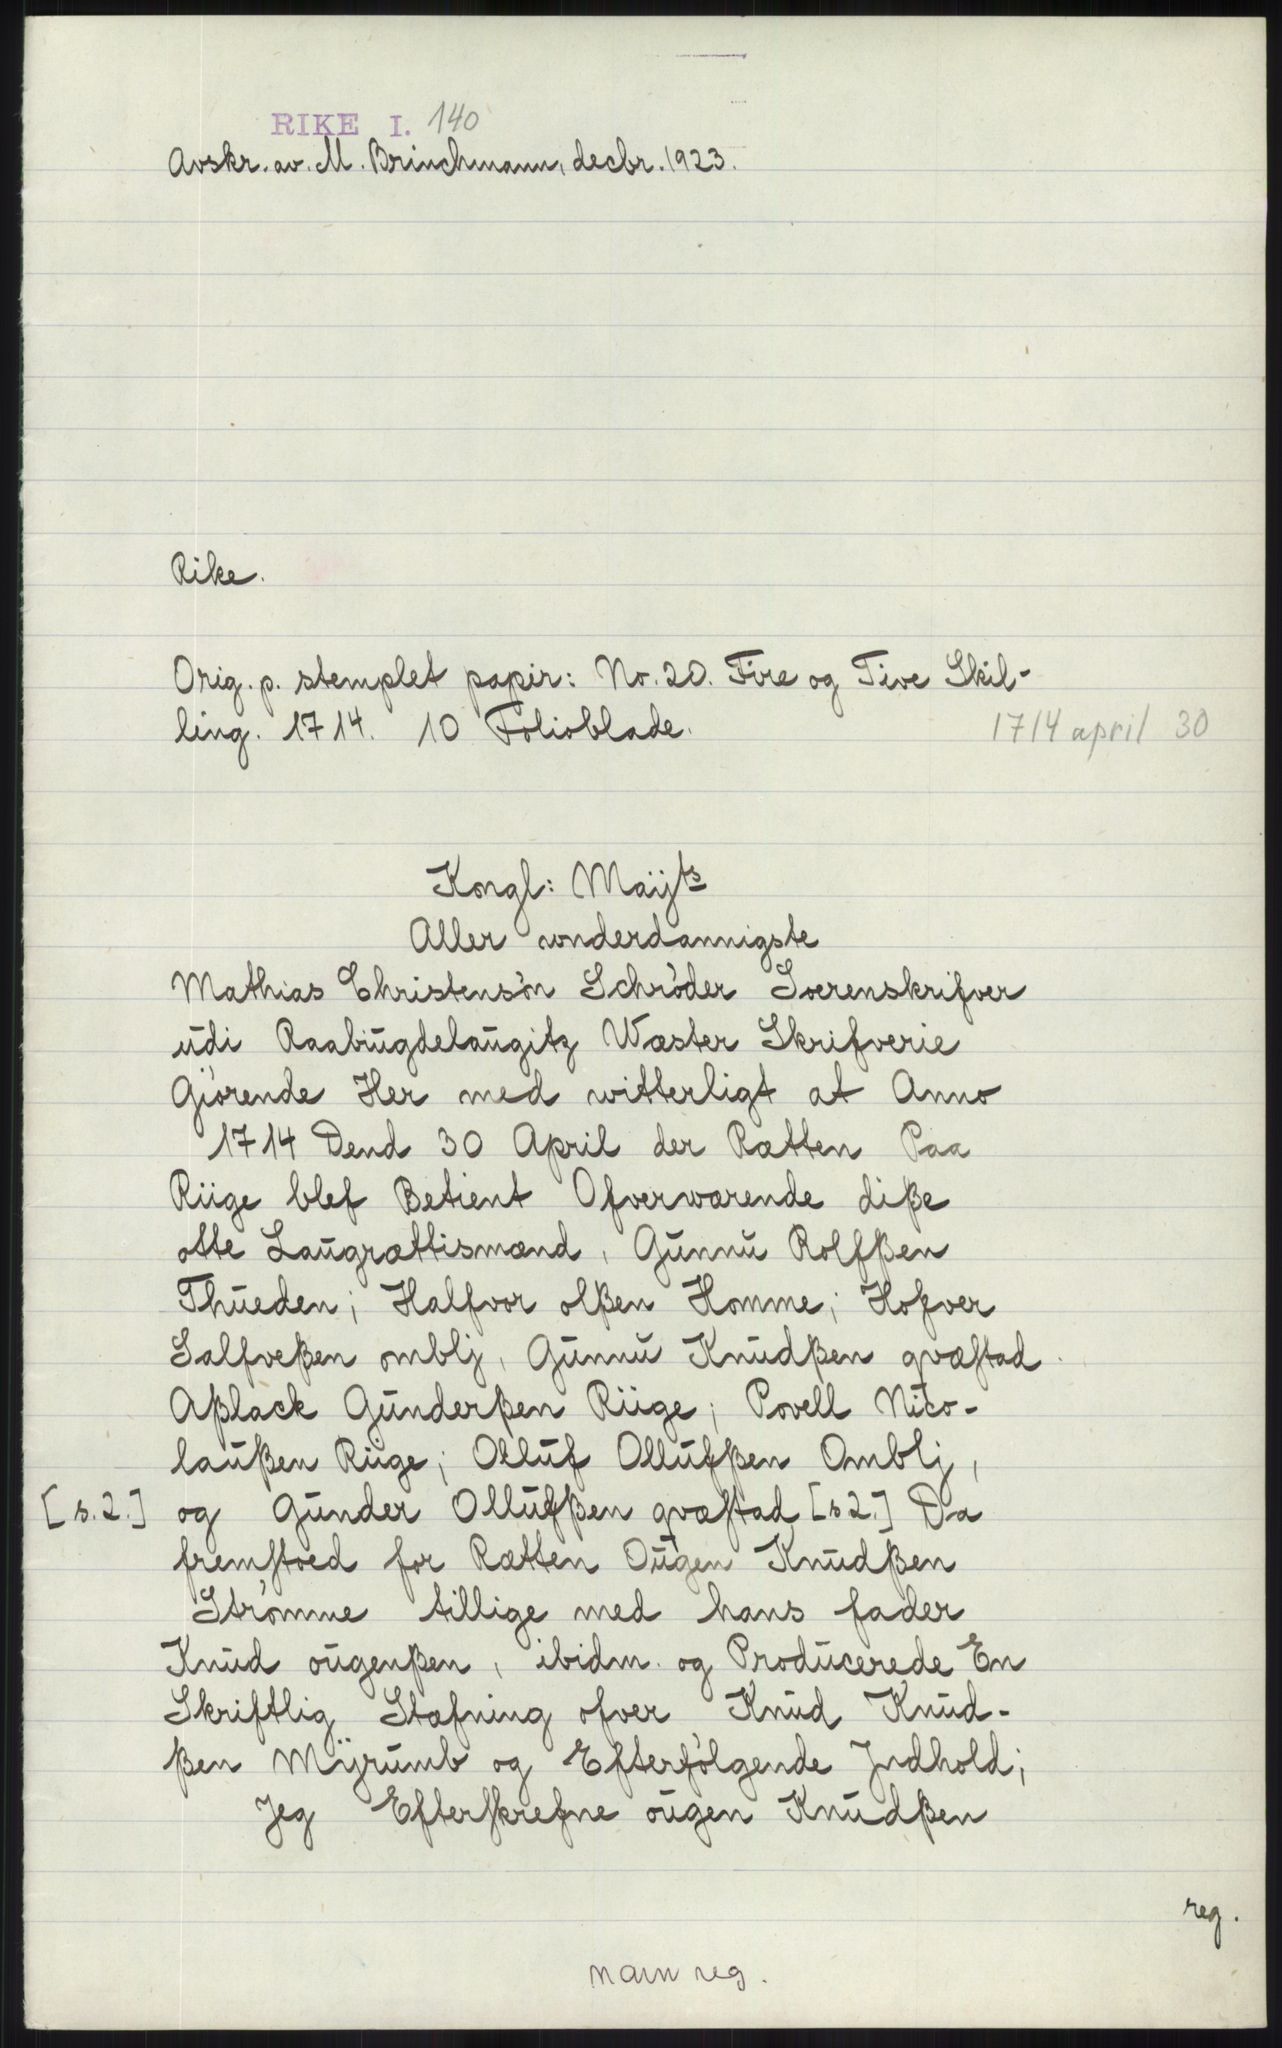 RIKE I. 140
Avskr. av. M. Brinchmann, decbr. 1923.
Rike.
Orig. p. stemplet papir: No. 20. Fire og Tive Skil-
ling. 1714. 10 Folioblade.
1714 april 30
Kongl: Maijts
Aller underdannigste
Mathias Christensön Schröder Soerenskrifver
udi Raabŭgdelaŭgitz Wæster Skrifverie
Giörende Her med witterligt at Anno
1714 Dend 30 April der Rætten Paa
Riige blef Betient Ofverwærende diße
otte Laŭgrættismænd, Gŭnnŭ Rolfßen
Thŭeden; Halfvor olßen Homme; Hofver
Salfveßen omblj, Gŭnnŭ Knŭdßen qvæstad
Aßlack Gŭnderßen Riige; Povell Nico-
laŭßen Riige; Olluf Ollŭfßen Omblj,
[s. 2.] og Gŭnder Ollŭfßen qvæstad [s 2.] Da
fremstoed for Rætten Oŭgen Knŭdßen
Strömme tillige med hans fader
Knŭd oŭgenßen, ibidm. og Prodŭcerede En
Skriftlig Stæfning ofver Knŭd Knŭd-
ßen Mÿrŭmb og Efterfölgende Jndhold;
Jeg Efterskrefne oŭgen Knŭdßen
reg.
navn reg.